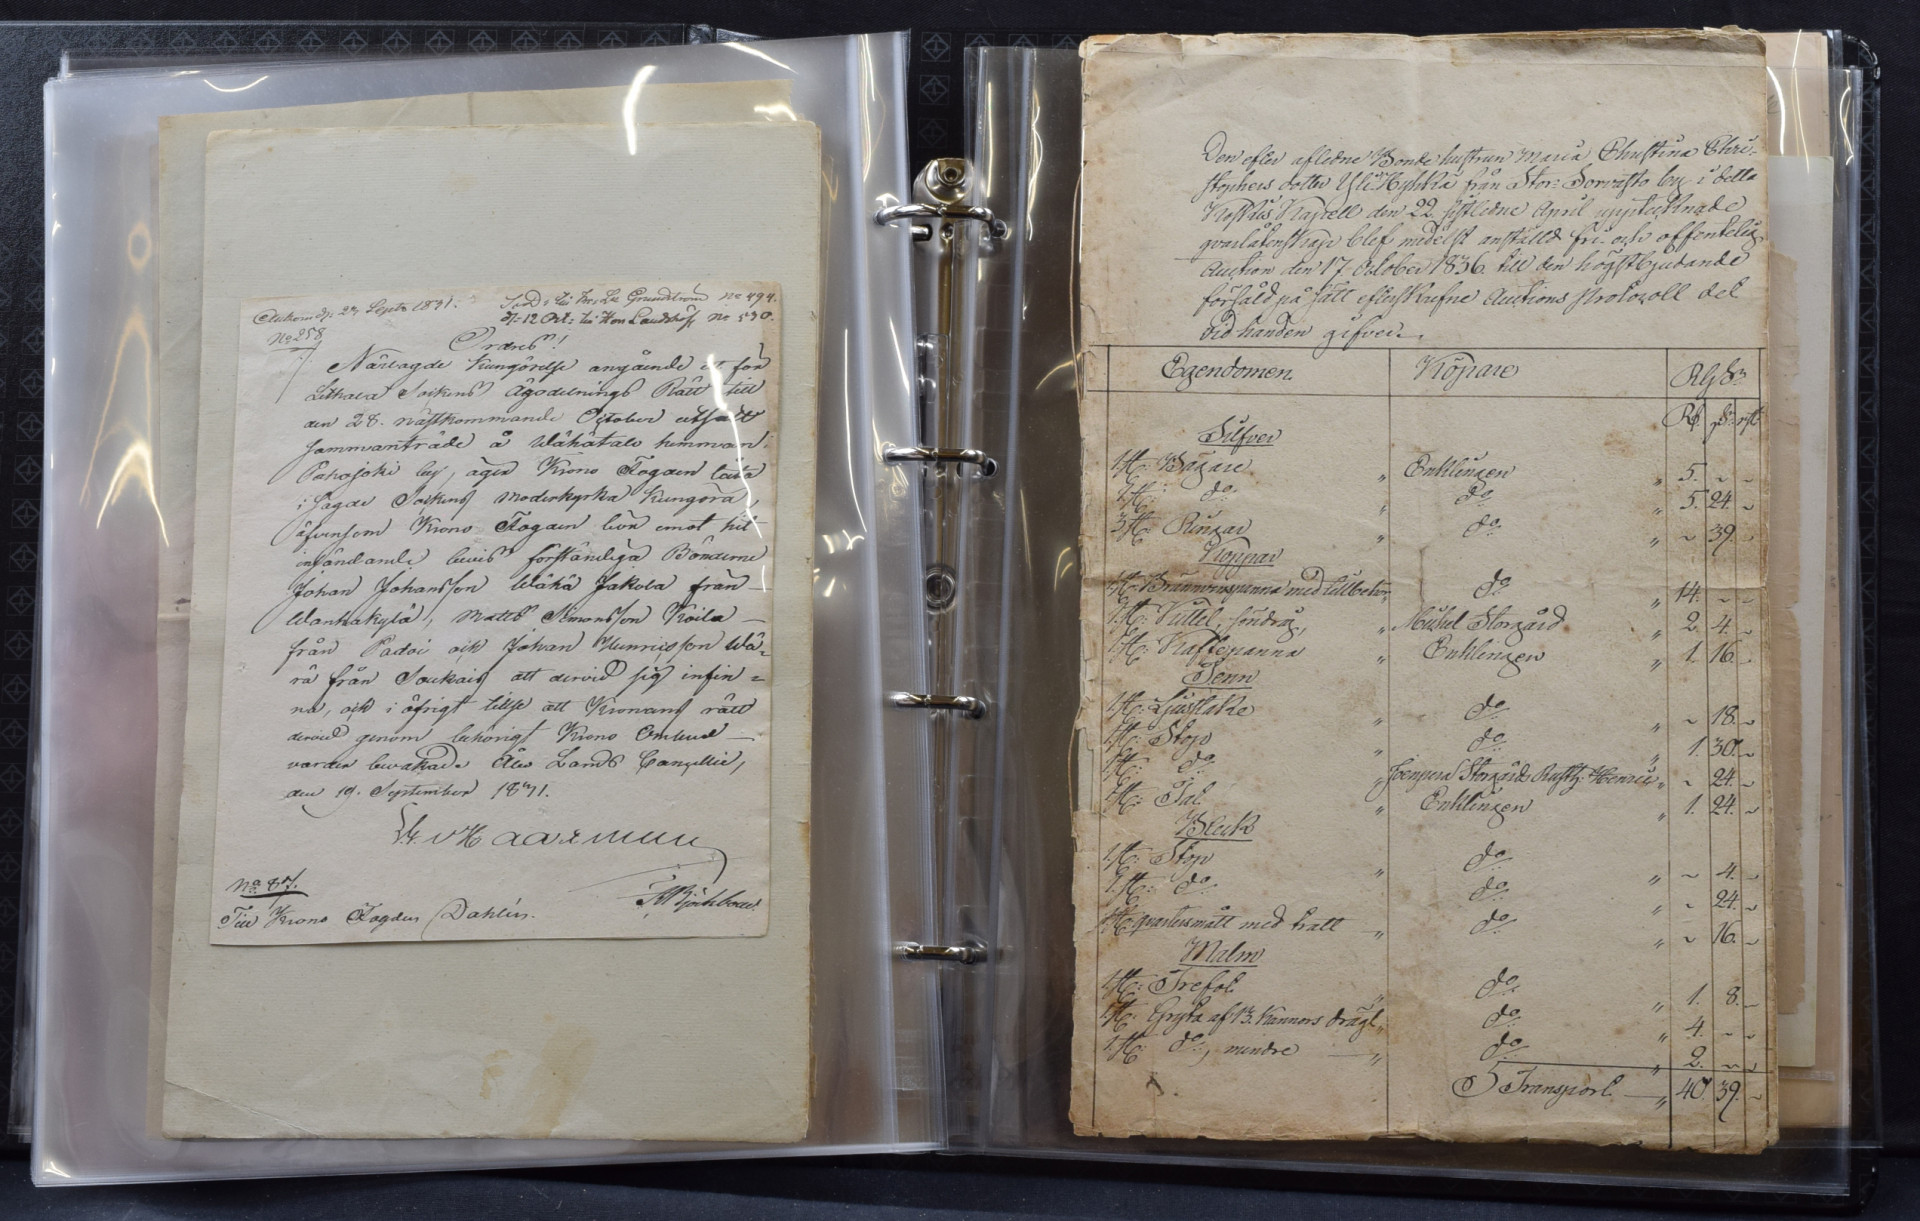 Ankom d. 27 Sept. 1831.
No 258
No 494.
d. 12 Oct. No 530.
Ordres!
Närlagde Kungörelse angående et för
Letkala Sockens Ägodelnings Rätt till
den 28. nästkommande October utsatt
sammanträde å Wähätalo hemman i
Pahajoki by, äger Krono Fogden låta
i sagde Sockens Moderkyrka Kungöra,
äfvensom Krono Fogden bör emot hit
insändande bevis förständiga Bönderne
Johan Johansson Wähä Jakola från
Wanhakylä, Matts Simonsson Koila
från Padoi och Johan Henricsson Wä-
rä från Soukain att dervid sig infin-
na, och i öfrigt tillse att Kronans rätt
dervid genom behörigt Krono Ombud
varder bevakad. Åbo Lands Cancellie,
den 19. September 1831.
v Haartman
No 87.
Till Krono Fogden Dahlén.
Den efter aflidne Bonde hustrun Maria Christina Chri-
stophers dotter Yli Hyhkiä från Stor Sorvasto by i detta
Koskis Kapell den 22 sistledne April upptecknade
qvarlåtenskap blef medelst anställd fri och offentelig
Auction den 17 October 1836 till den högstbjudande
försåld på sätt efterskrefne Auctions Protocoll det
vid handen gifver.
Egendomen. Köpare
Silfver
1 st: Bägare " Enklingen " 5. - -
1 st: do " do " 5. 24. -
3 st: Ringar " do " - 39. -
Koppar
1 st: Brännvinspanna med tillbehör " do " 14. - -
1 st: Kittel, söndrig, " Michel Storgård " 2. 4. -
1 st: Kaffepanna " Enklingen " 1. 16. -
Tenn
1 st: Ljusstake " do " - 18. -
1 st: Stop " do " 1. 30. -
1 st: do " Joenpera Storgårds Rusth: Henric " - 24. -
1 st: Fat " Enklingen " 1. 24. -
Bleck
1 st: Stop " do " - 4. -
1 st: do " do " - 24. -
1 st: quartersmått med tratt " do " - 16. -
Malm
1 st: Trefot " do " 1. 8. -
1 st: Gryta af 13. Kannors drägt " do " 4. - -
1 st: do, mindre " do " 2. - -
Transport " 40. 39. -